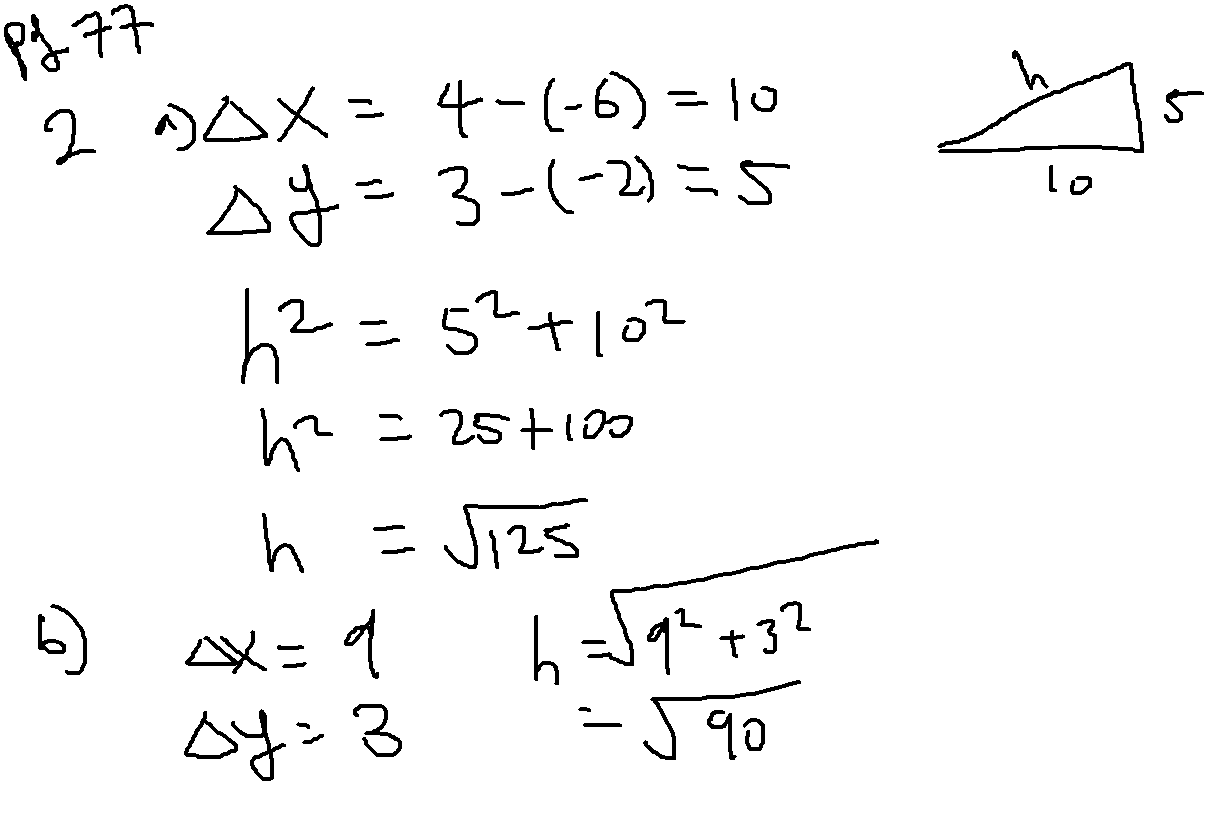 pg 77
2 a) Δx = 4 - (-6) = 10
Δy = 3 - (-2) = 5
h
5
10
h² = 5² + 10²
h² = 25 + 100
h = √125
b) Δx = 9 h = √9² + 3²
Δy = 3 = √90